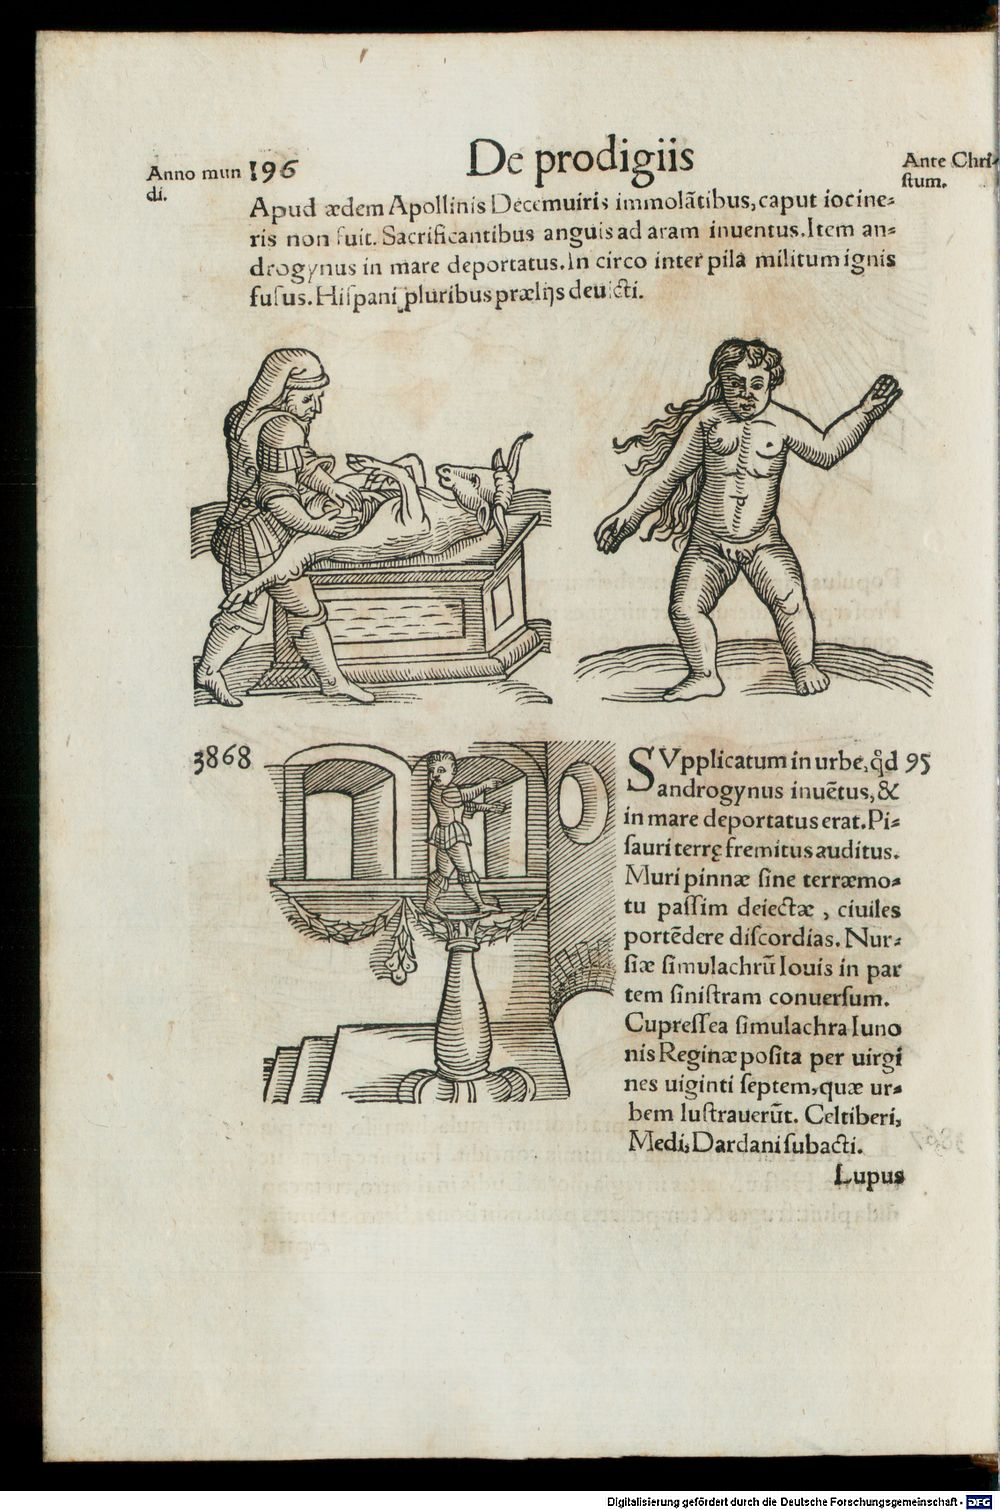 Anno mun
di.
196
De prodigiis
Ante Chri-
stum.
Apud ædem Apollinis Decemuiris immolātibus, caput iocine⸗
ris non fuit. Sacrificantibus anguis ad aram inuentus. Item an⸗
drogynus in mare deportatus. In circo inter pila militum ignis
fuſus. Hiſpani pluribus prælijs deuicti.
3868
SVpplicatum in urbe, q̊d 95
androgynus inuētus, &
in mare deportatus erat. Pi⸗
ſauri terrę fremitus auditus.
Muri pinnæ ſine terræmo⸗
tu paſſim deiectæ , ciuiles
portēdere diſcordias. Nur⸗
ſiæ ſimulachrū Iouis in par
tem ſiniſtram conuerſum.
Cupreſſea ſimulachra Iuno
nis Reginæ poſita per uirgi
nes uiginti ſeptem, quæ ur⸗
bem luſtrauerūt. Celtiberi,
Medi, Dardani ſubacti.
Lupus
Digitalisierung gefördert durch die Deutsche Forschungsgemeinschaft - DFG